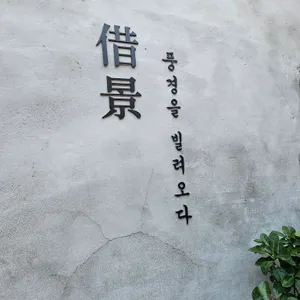 借景
풍경을 빌려오다